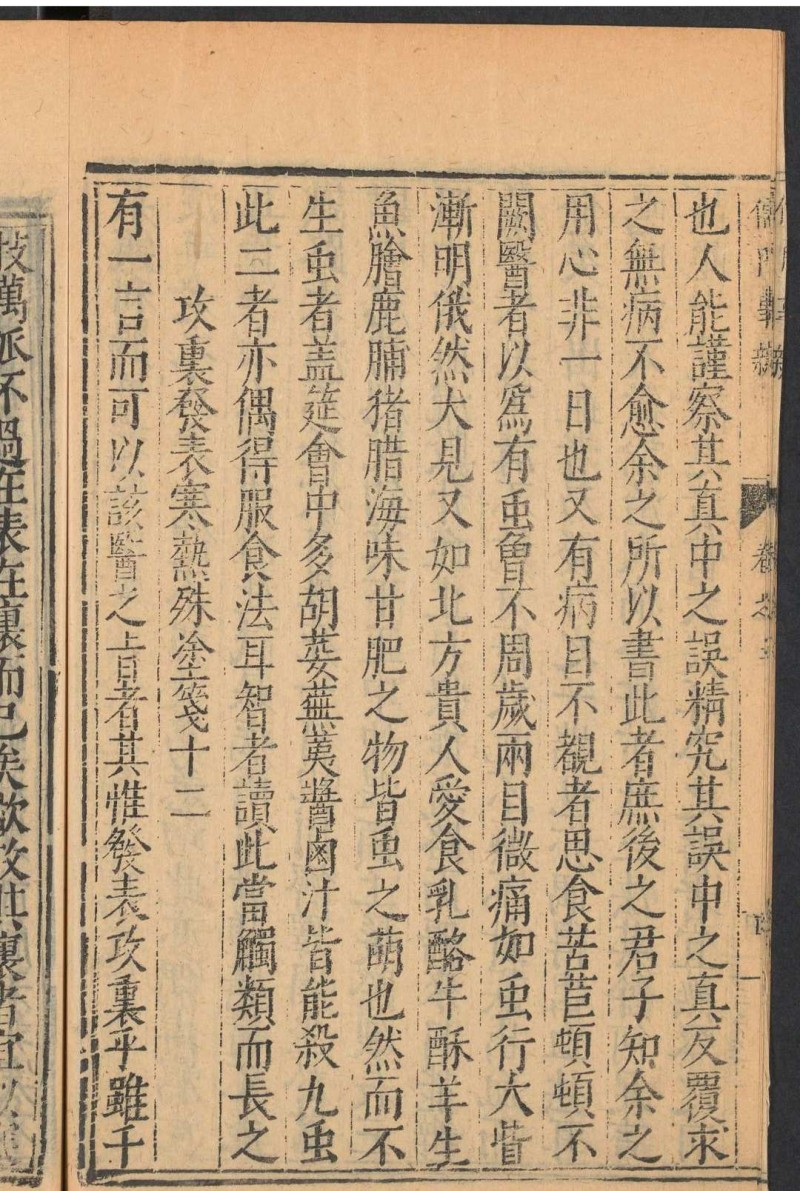 儒門事親
卷之三
也人能謹察其真中之誤精究其誤中之真反覆求
之無病不愈余之所以書此者庶後之君子知余之
用心非一日也又有病目不覩者思食苦苣頓頓不
闕醫者以爲有虫曾不周歲兩目微痛如虫行大眥
漸明俄然大見又如北方貴人愛食乳酪牛酥羊生
魚膾鹿脯猪腊海味甘肥之物皆虫之萌也然而不
生虫者盖筵會中多胡荽蕪荑醬鹵汁皆能殺九虫
此二者亦偶得服食法耳智者讀此當觸類而長之
攻裏發表寒熱殊塗箋十二
有一言而可以該醫之旨者其惟發表攻裏乎雖千
枝萬派不過在表在裏而已矣欲攻其裏者宜以